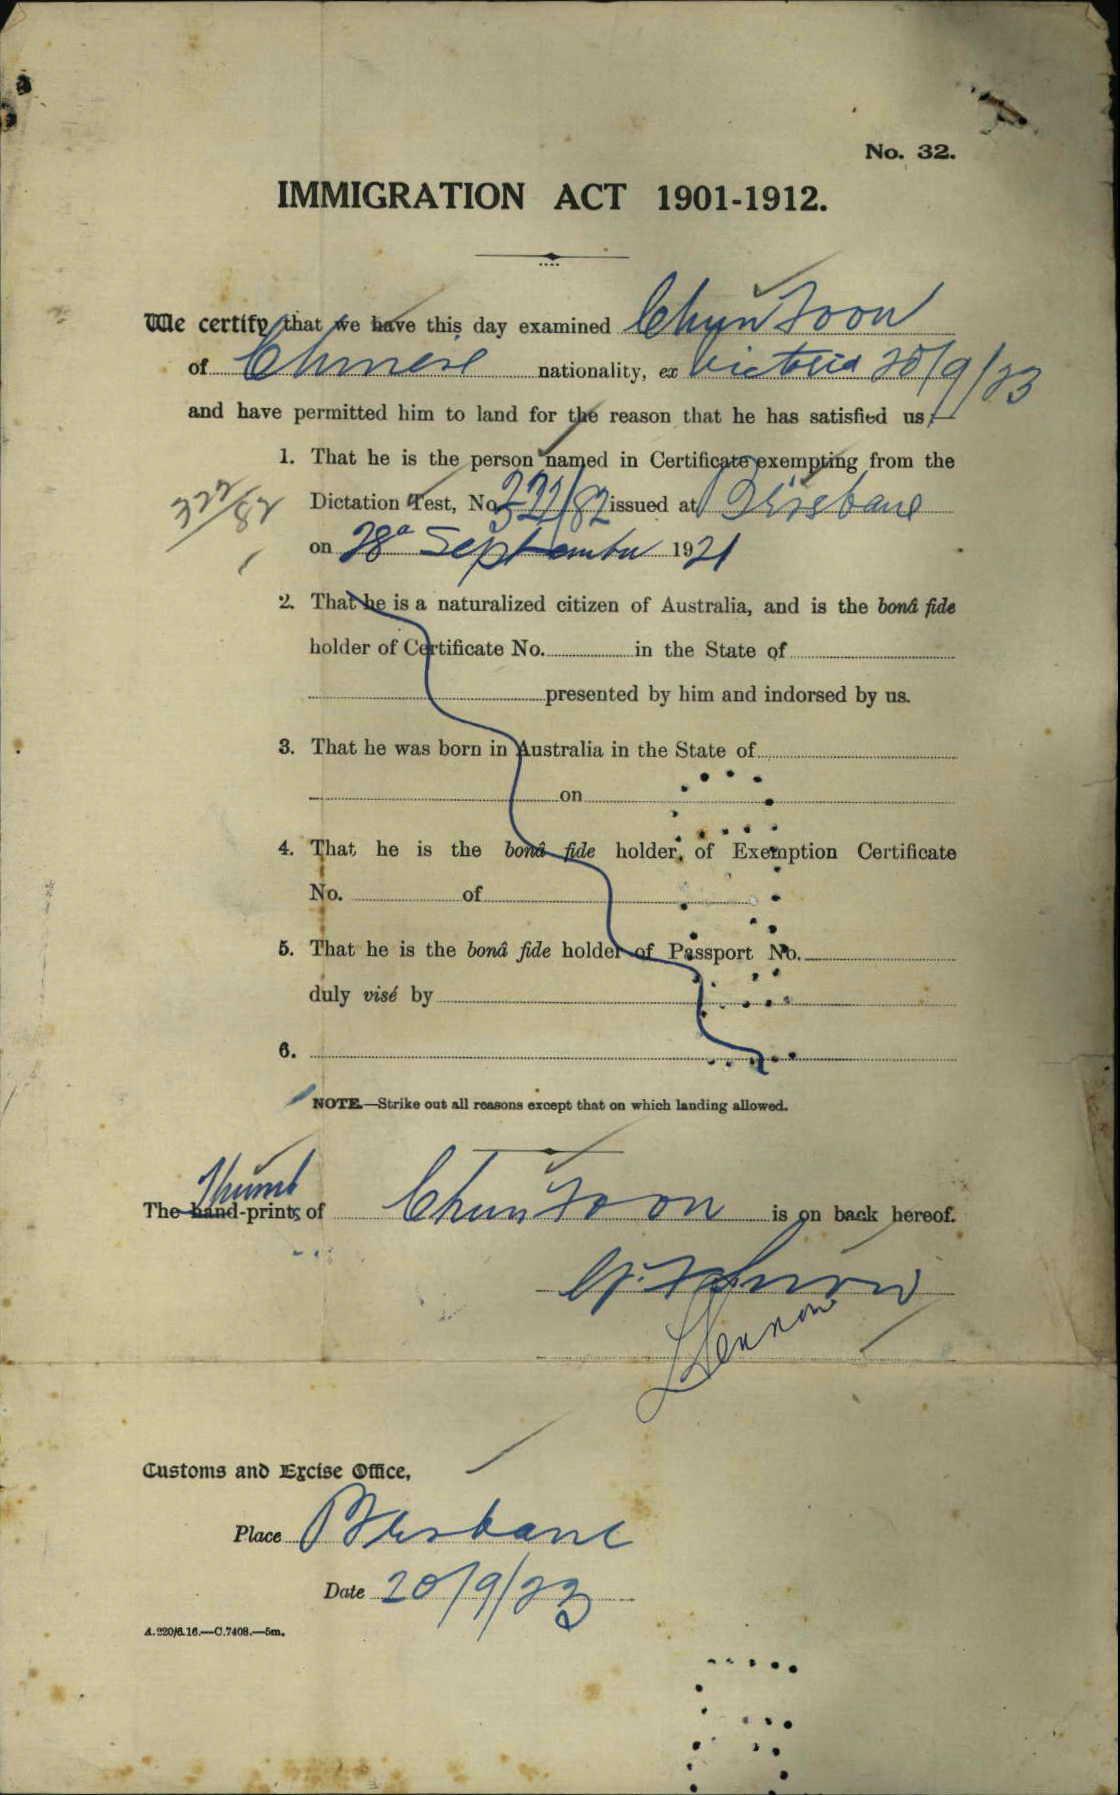 No. 32.
IMMIGRATION ACT 1901-1912.
We certify that we have this day examined Chun Foon
of Chinese nationality, ex Victoria 20/9/23
and have permitted him to land for the reason that he has satisfied us,—
1. That he is the person named in Certificate exempting from the
Dictation Test, No. 322/82 issued at Brisbane
322/82
on 28th September 1921
2. That he is a naturalized citizen of Australia, and is the bonâ fide
holder of Certificate No. in the State of
presented by him and indorsed by us.
3. That he was born in Australia in the State of
on
4. That he is the bonâ fide holder of Exemption Certificate
No. of
5. That he is the bonâ fide holder of Passport No.
duly visé by
6.
NOTE.—Strike out all reasons except that on which landing allowed.
Thumb
The hand-prints of Chun Foon is on back hereof.
Customs and Excise Office,
Place Brisbane
Date 20/9/23
A.220/6.16.—C.7408.—5m.